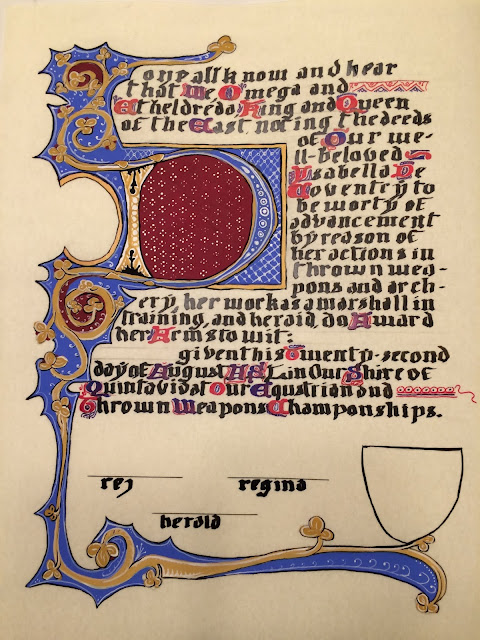 one all know and hear
that We Omega and
Etheldreda King and Queen
of the East noting the deeds
of Our we-
ll-beloved
Isabella De
Coventry to
be worty of
advancement
by reason of
her actions in
thrown wea-
pons and arch-
ery, her work as a marshall in
training, and herald, do Award
her Arms to wit:
given this Twenty-second
day of August AS L in Our Shire of
Quintavia at Our Equstrian and
Thrown Weapons Champonships.
rex regina
herald